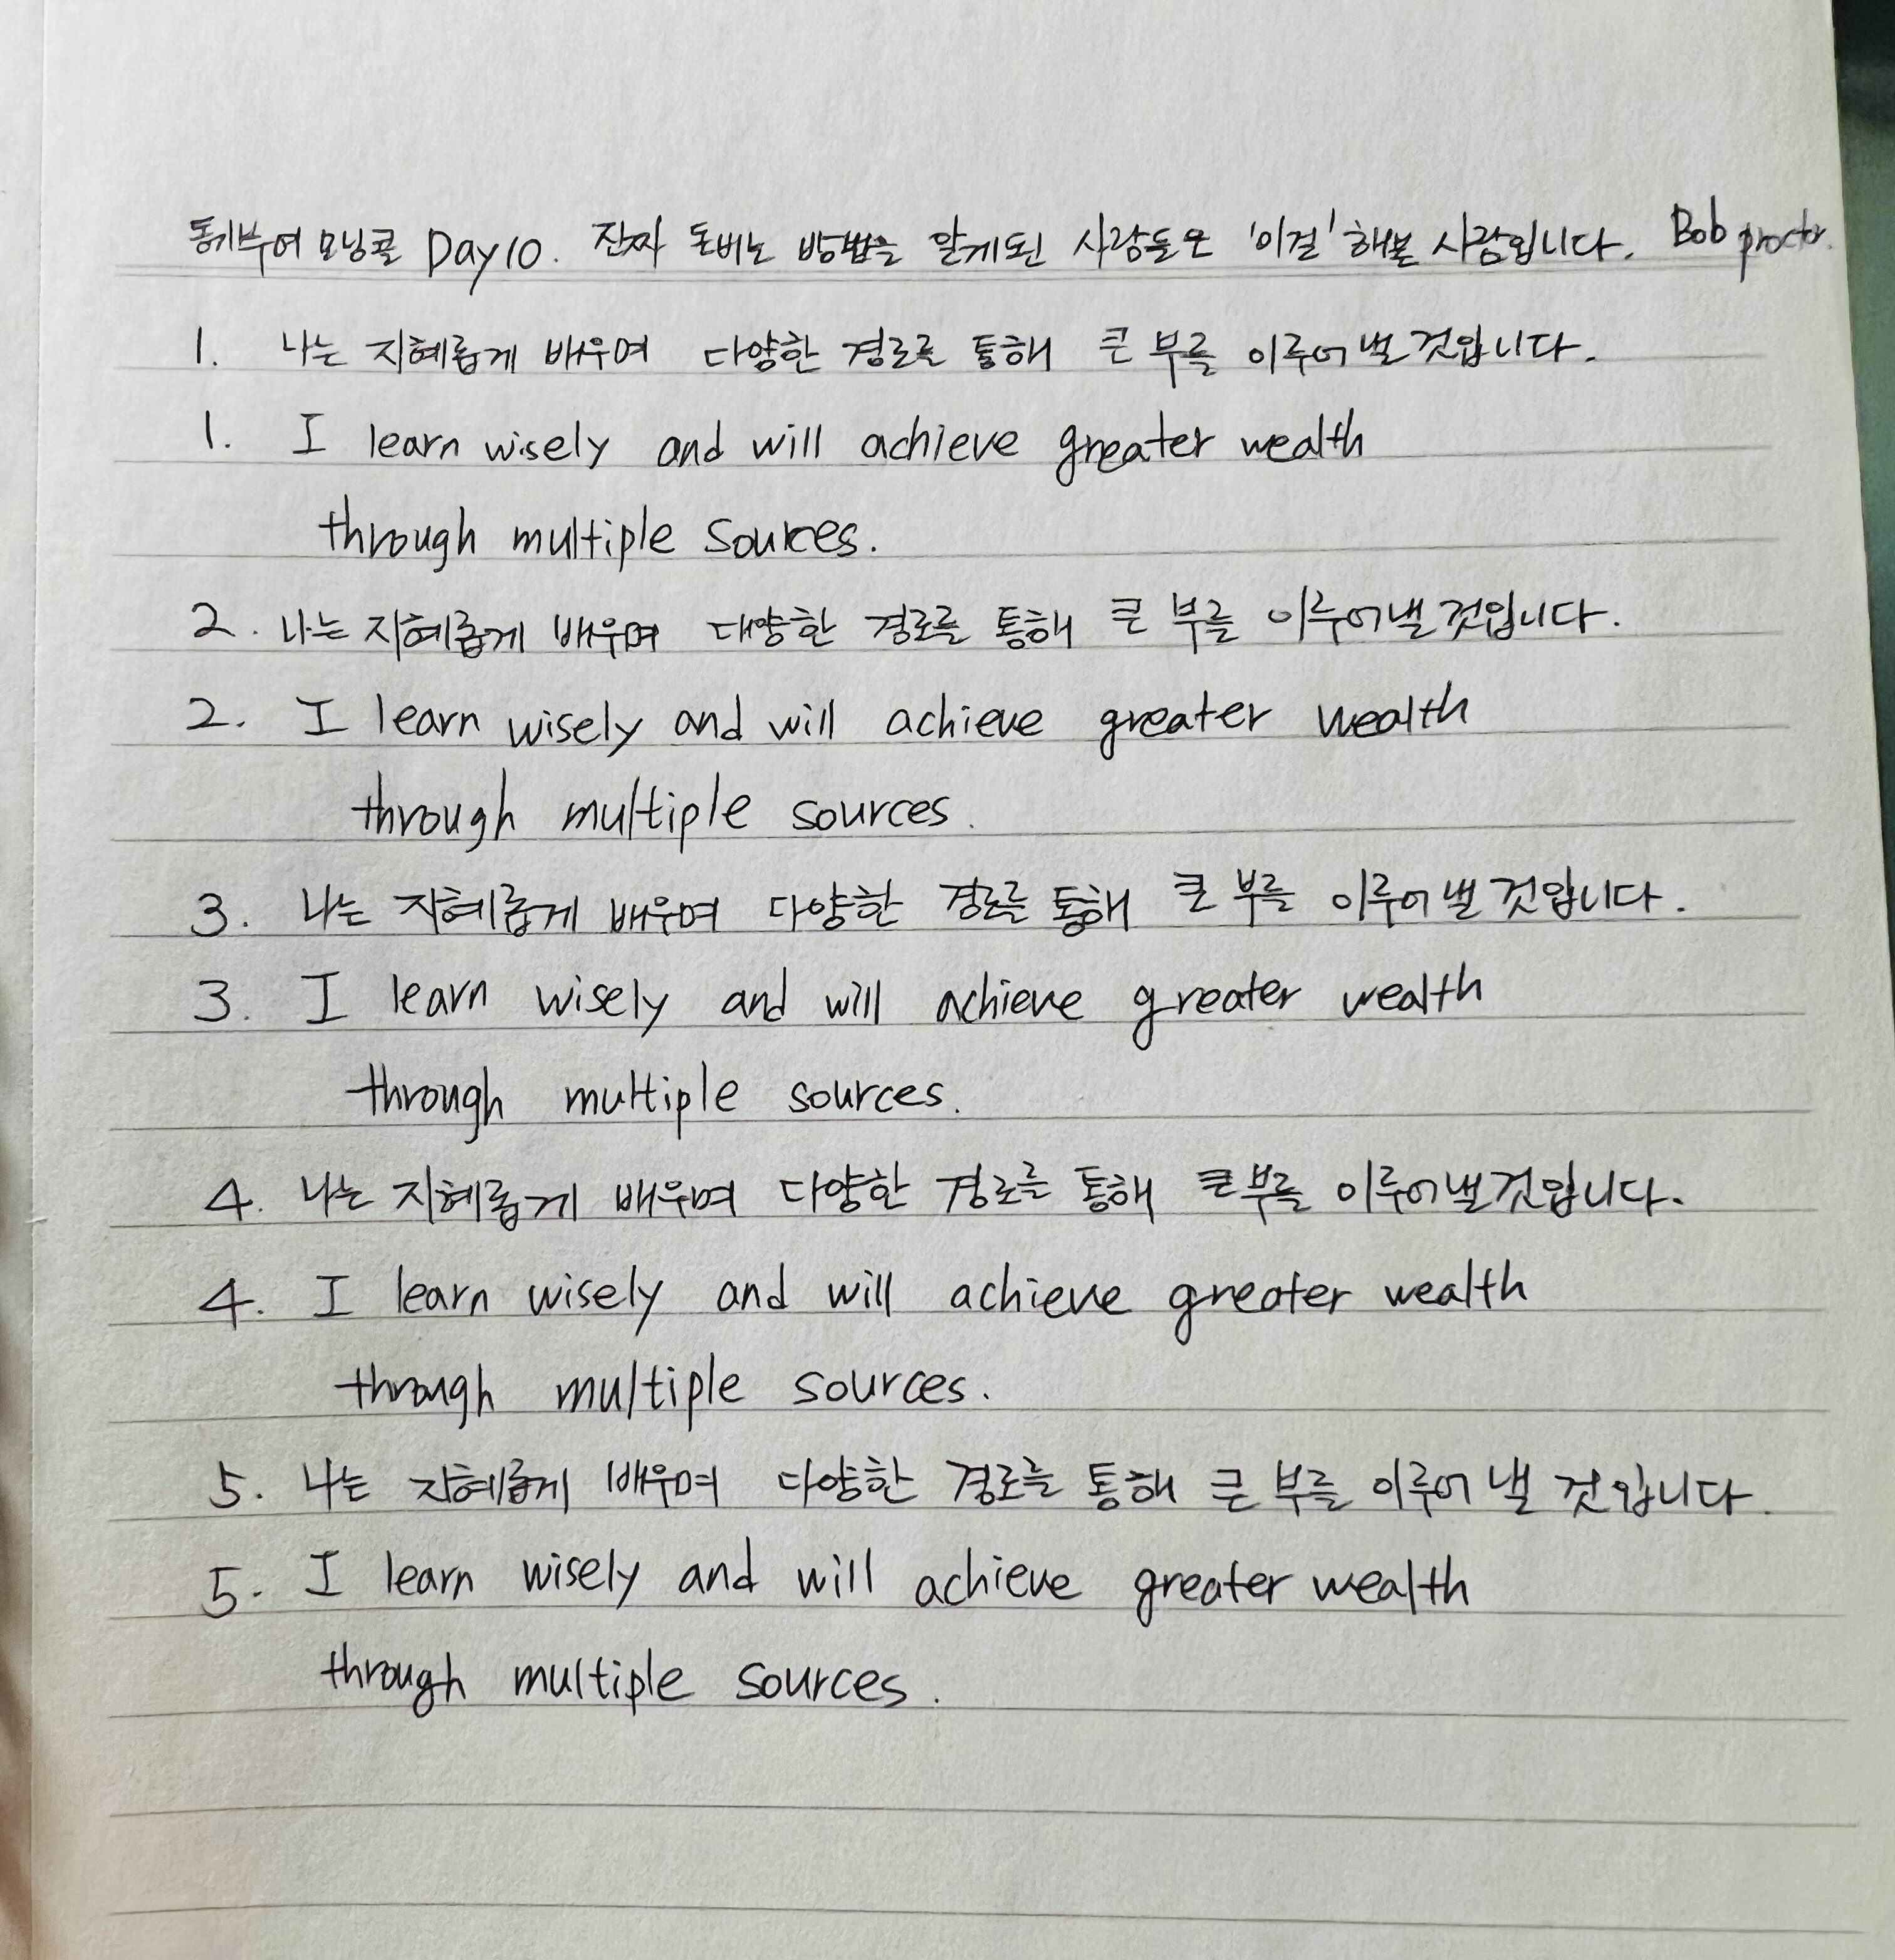 동기부여 모닝콜 Day10. 진짜 돈버는 방법을 알게된 사람들은 '이걸' 해본 사람입니다. Bob proctor.
1. 나는 지혜롭게 배우며 다양한 경로를 통해 큰 부를 이루어낼 것입니다.
1. I learn wisely and will achieve greater wealth
through multiple sources.
2. 나는 지혜롭게 배우며 다양한 경로를 통해 큰 부를 이루어낼 것입니다.
2. I learn wisely and will achieve greater wealth
through multiple sources.
3. 나는 지혜롭게 배우며 다양한 경로를 통해 큰 부를 이루어낼 것입니다.
3. I learn wisely and will achieve greater wealth
through multiple sources.
4. 나는 지혜롭게 배우며 다양한 경로를 통해 큰 부를 이루어낼 것입니다.
4. I learn wisely and will achieve greater wealth
through multiple sources.
5. 나는 지혜롭게 배우며 다양한 경로를 통해 큰 부를 이루어 낼 것입니다.
5. I learn wisely and will achieve greater wealth
through multiple sources.